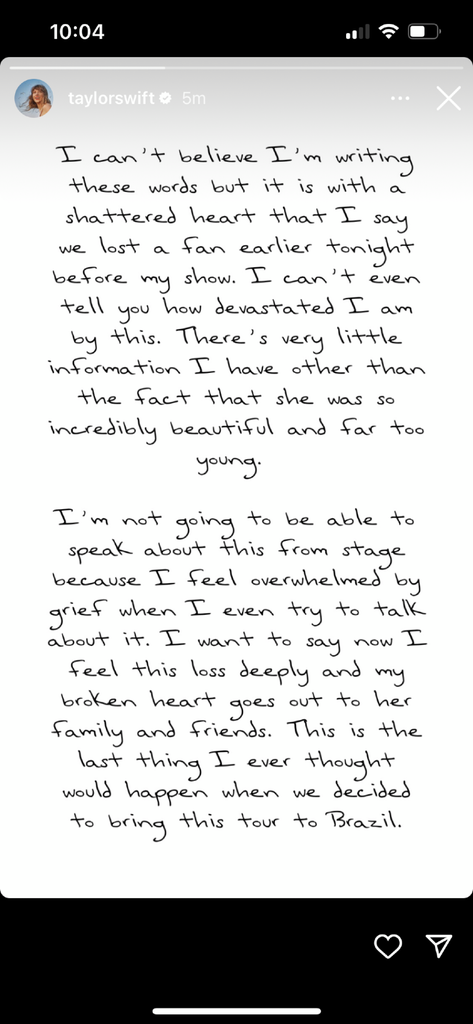 10:04
taylorswift 5m
I can't believe I'm writing
these words but it is with a
shattered heart that I say
we lost a fan earlier tonight
before my show. I can't even
tell you how devastated I am
by this. There's very little
information I have other than
the fact that she was so
incredibly beautiful and far too
young.
I'm not going to be able to
speak about this from stage
because I feel overwhelmed by
grief when I even try to talk
about it. I want to say now I
feel this loss deeply and my
broken heart goes out to her
family and friends. This is the
last thing I ever thought
would happen when we decided
to bring this tour to Brazil.